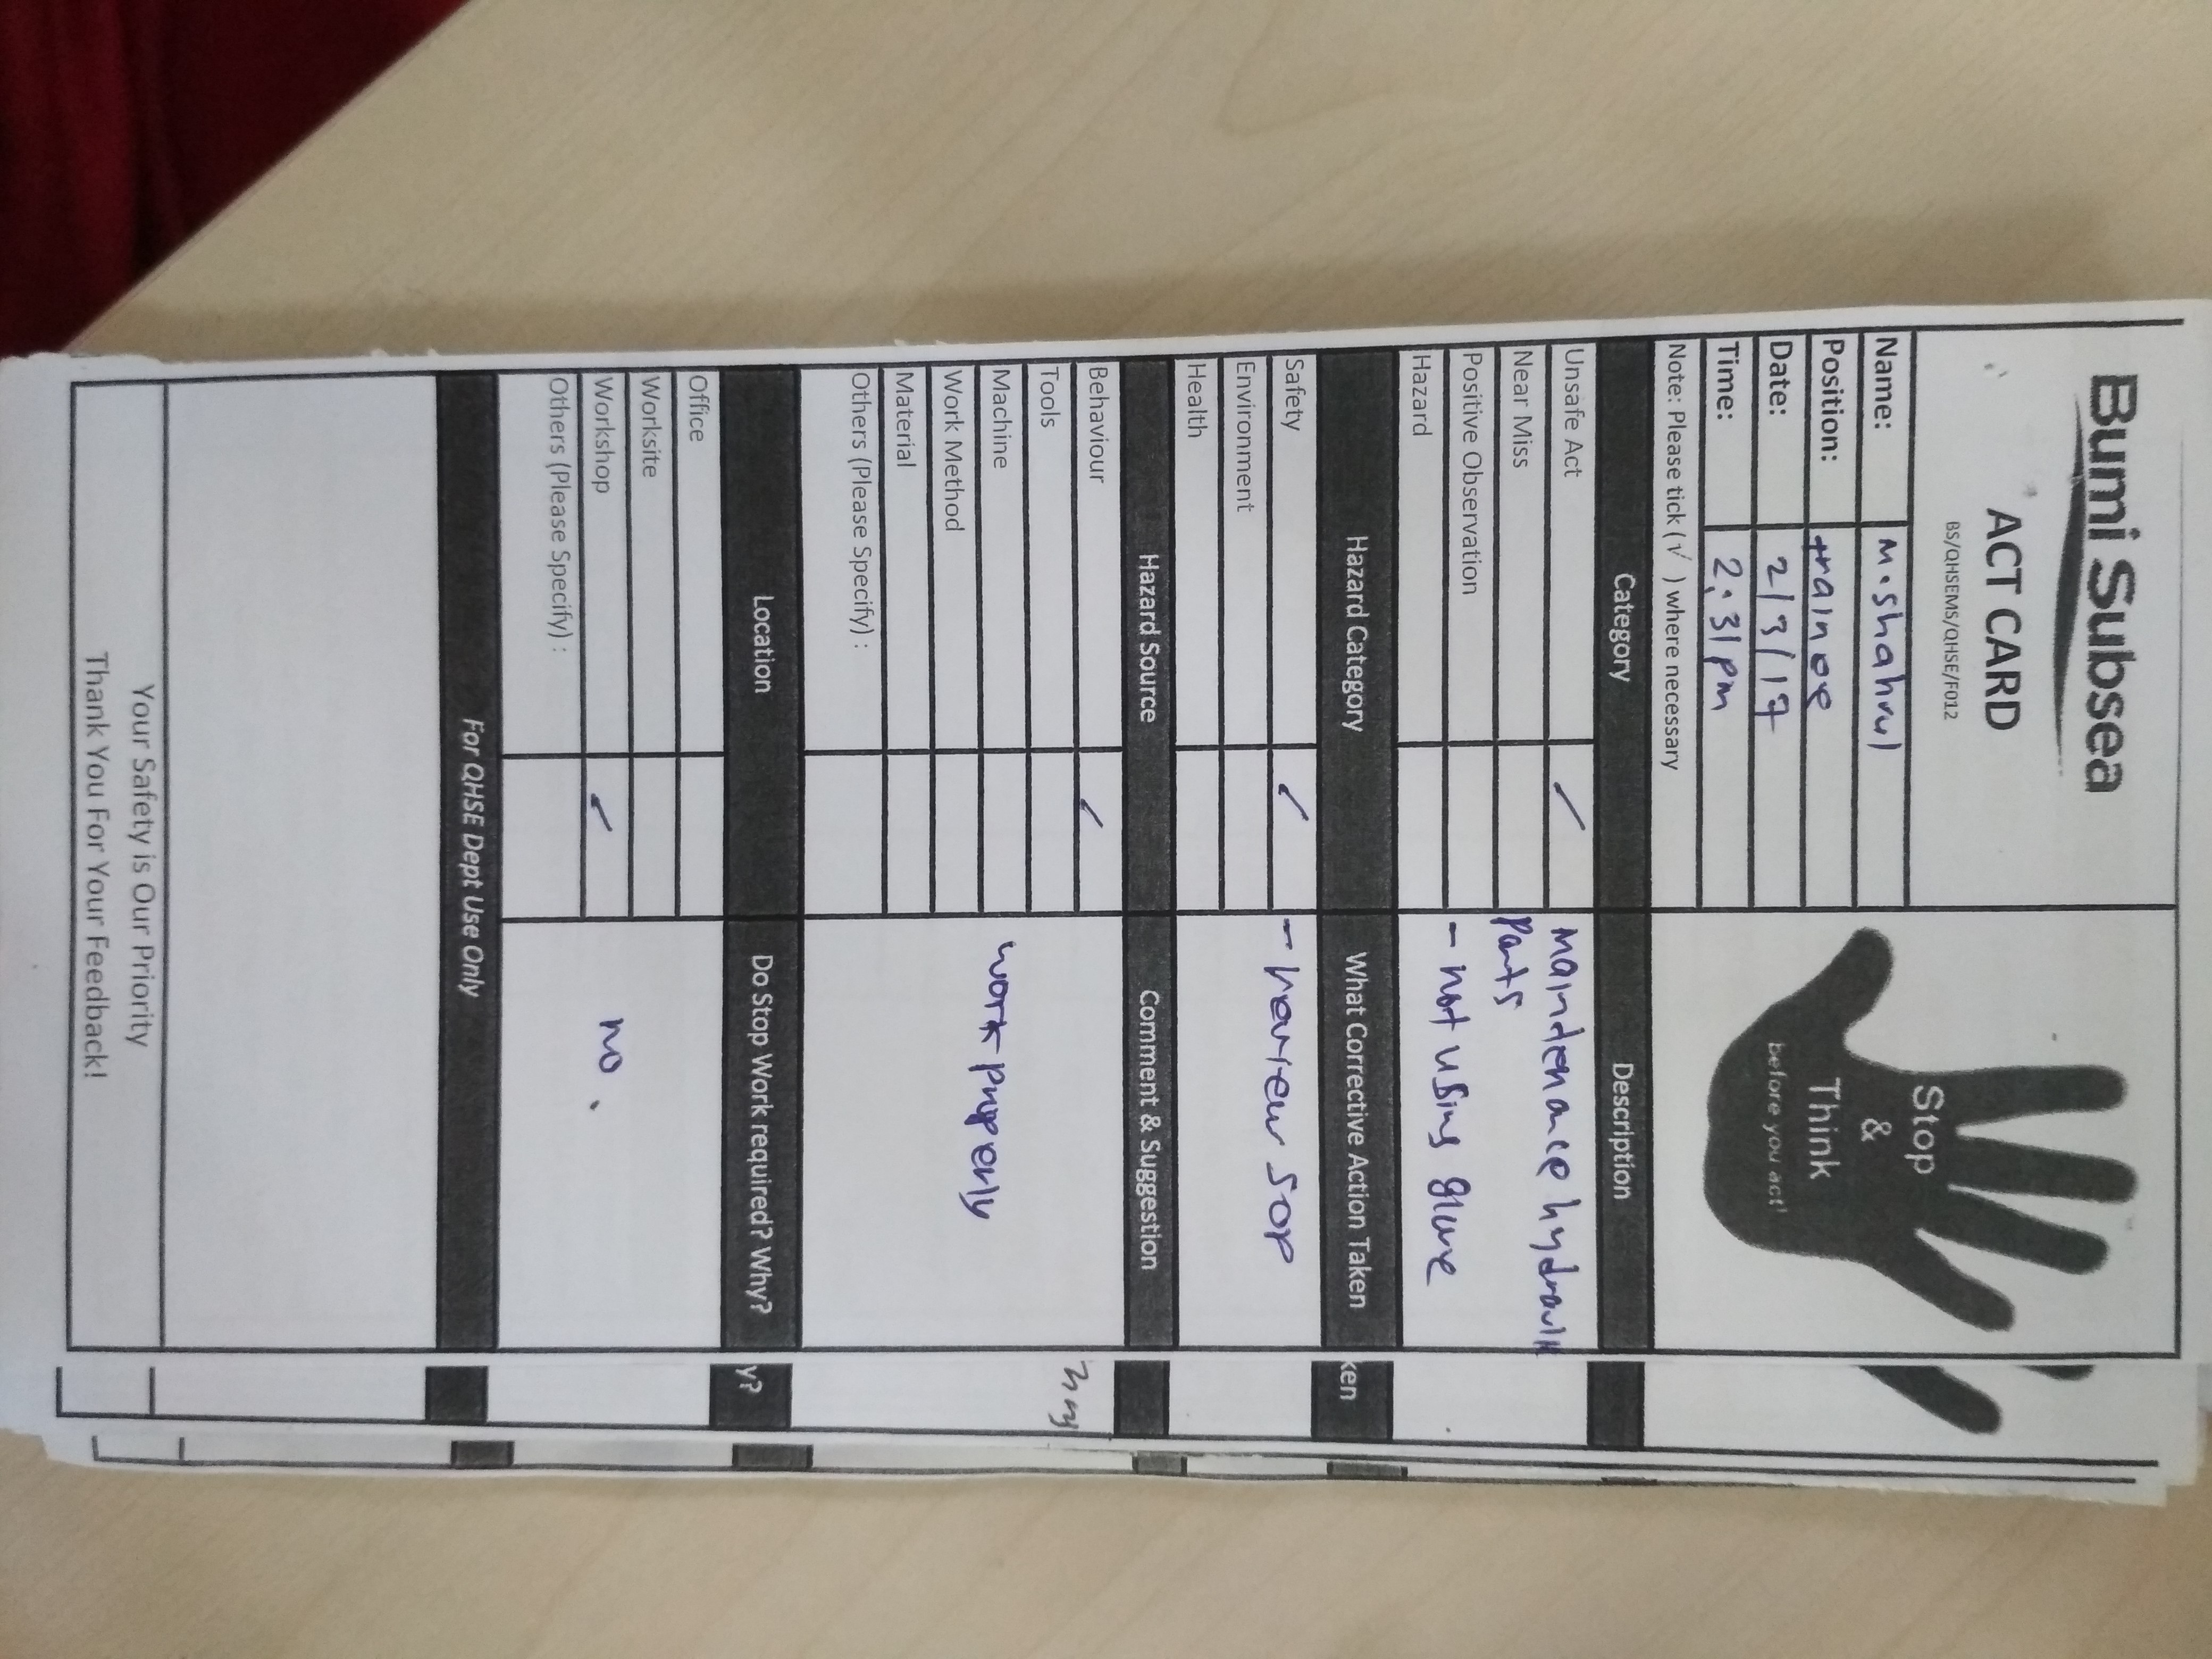 Bumi Subsea
ACT CARD
BS/QHSEMS/QHSE/F012
Stop
&
Think
before you act!
Name: M. shahrul
Position: trainee
Date: 2/3/17
Time: 2.31pm
Note: Please tick (√ ) where necessary
Category Description
Unsafe Act ✓ maintenance hydraulic
Near Miss parts
Positive Observation - not using glove
Hazard
Hazard Category What Corrective Action Taken
Safety ✓ - review SOP
Environment
Health
Hazard Source Comment & Suggestion
Behaviour ✓
Tools
Machine work properly
Work Method
Material
Others (Please Specify) :
Location Do Stop Work required? Why?
Office
Worksite
Workshop ✓ no.
Others (Please Specify) :
For QHSE Dept Use Only
Your Safety is Our Priority
Thank You For Your Feedback!
ken
y?